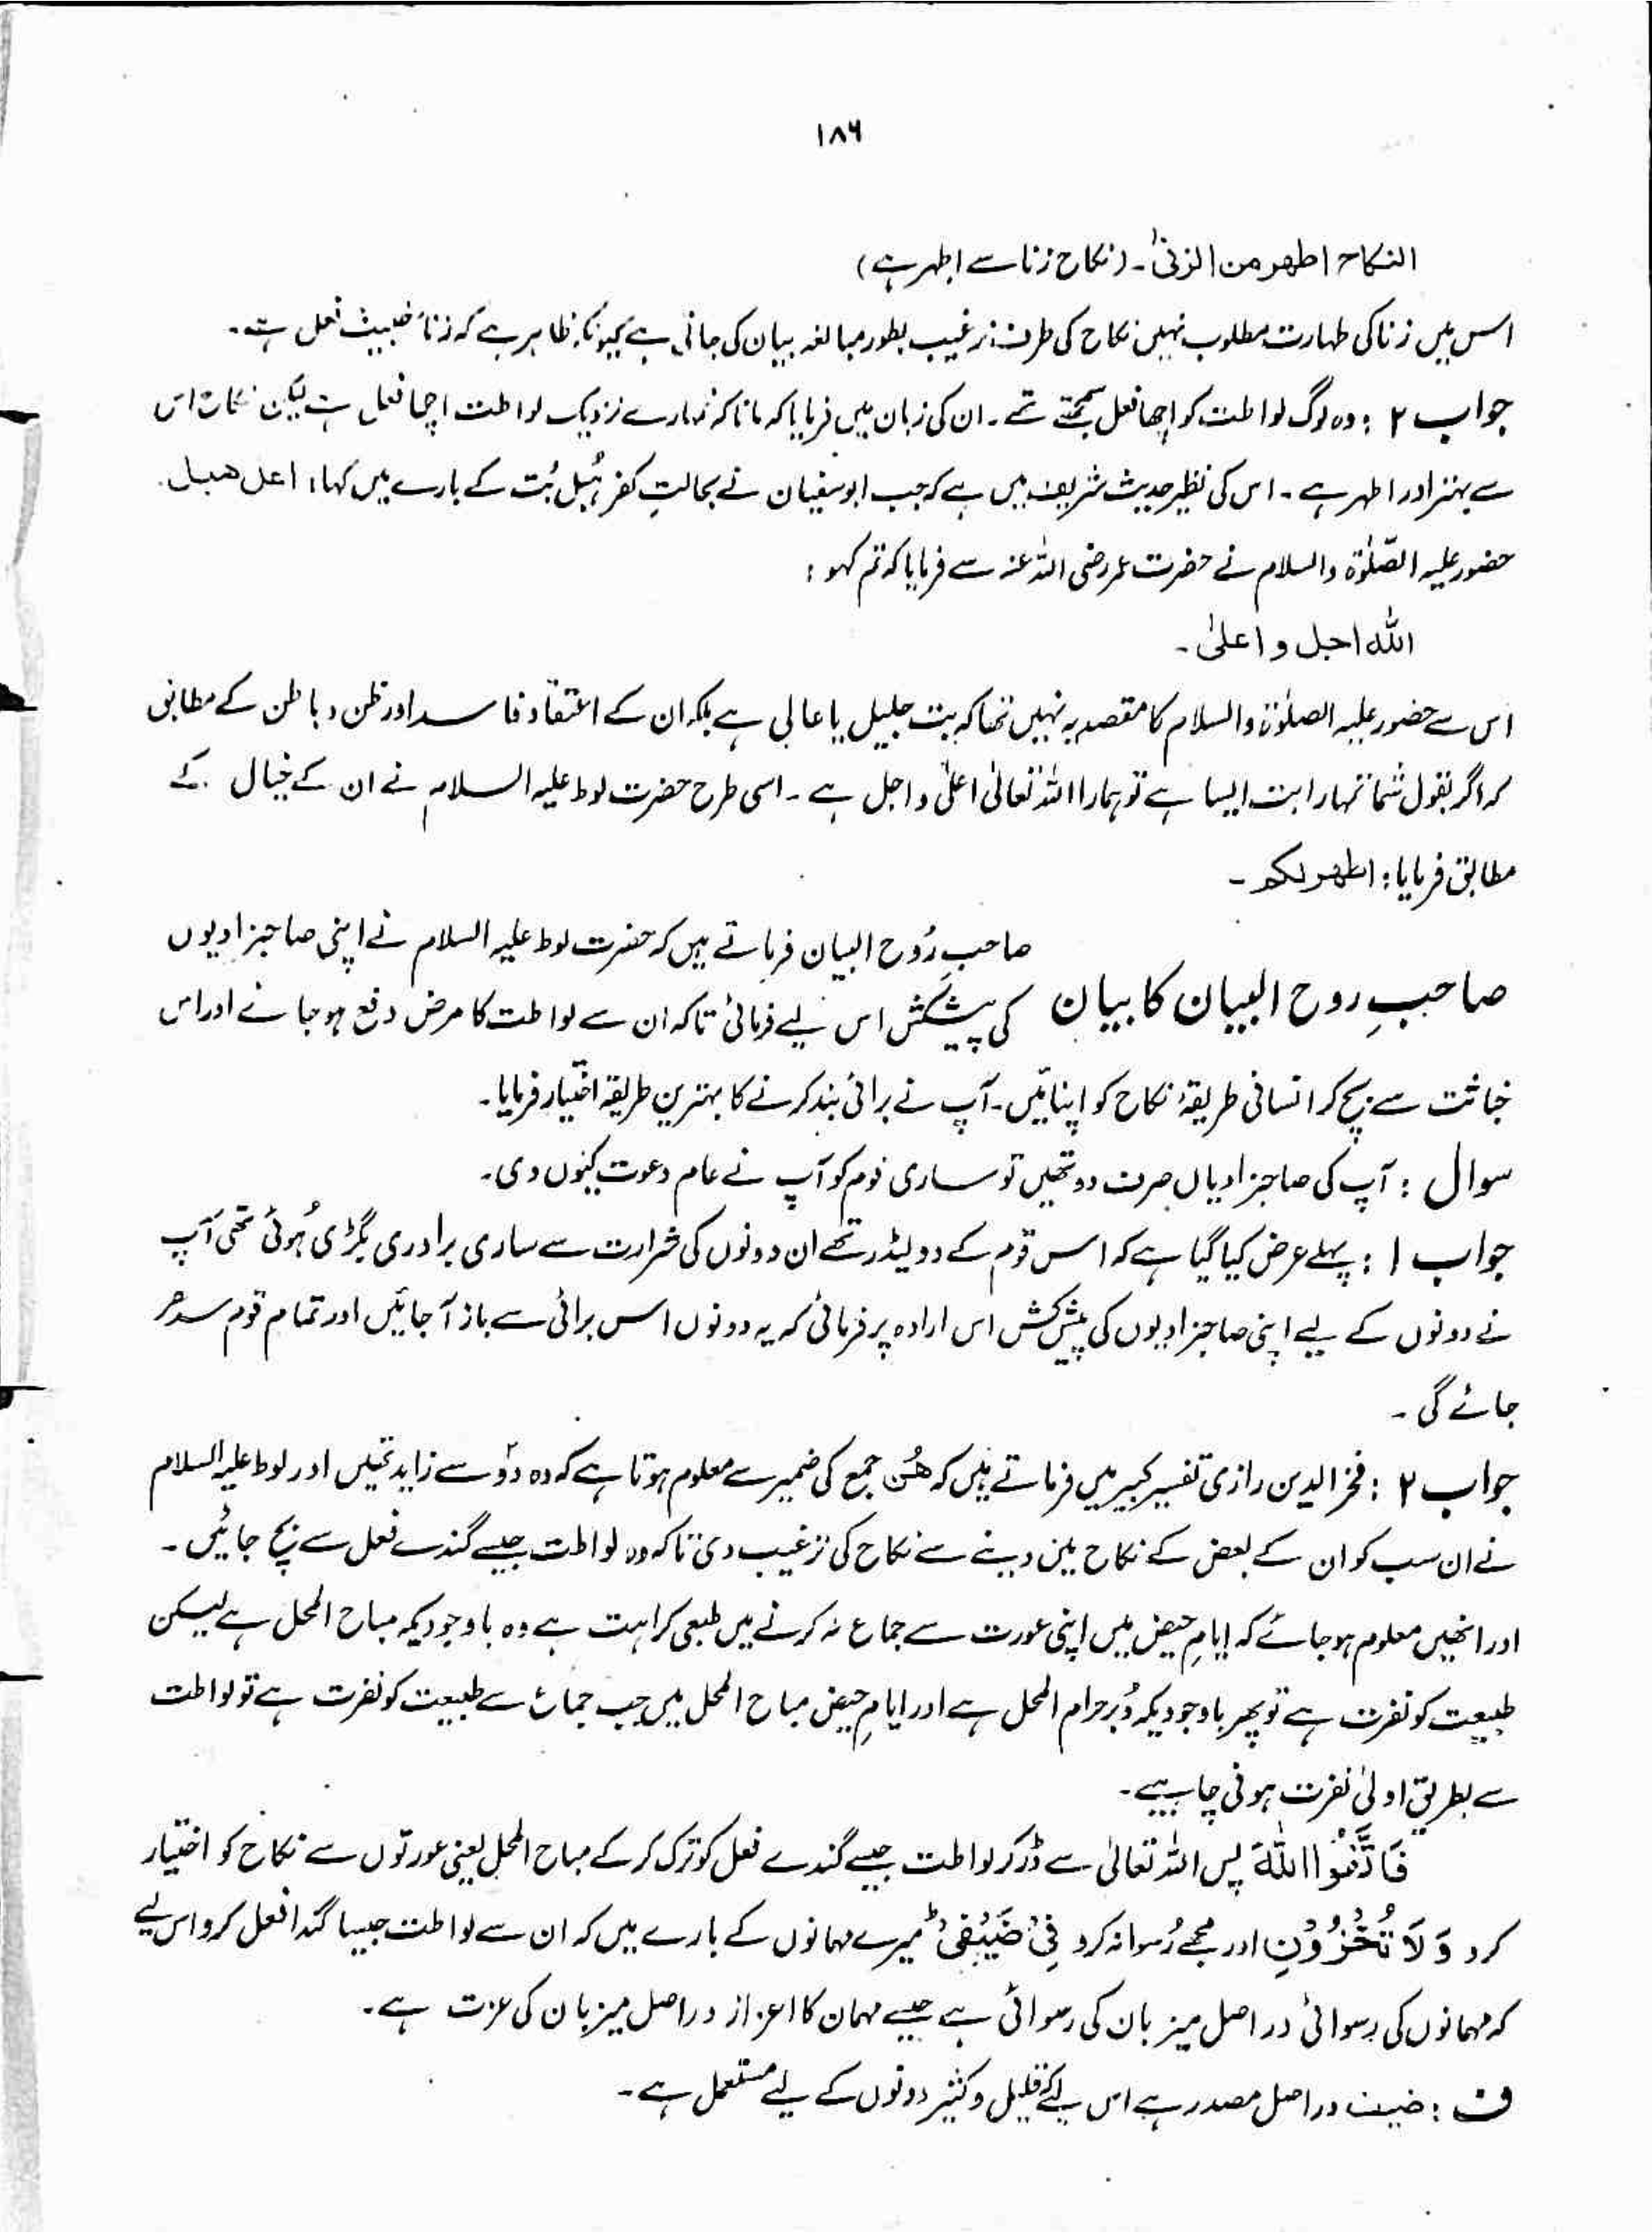 ۱۸۶
النکاح اطھر من الزنیٰ۔ (نکاح زنا سے اطہر ہے)
اس میں زنا کی طہارت مطلوب نہیں نکاح کی طرف ترغیب بطور مبالغہ بیان کی جاتی ہے کیونکہ ظاہر ہے کہ زنا خبیث فعل ہے۔
جواب ۲ : وہ لوگ لواطت کو اچھا فعل سمجھتے تھے۔ ان کی زبان میں فرمایا کہ مانا کہ تمہارے نزدیک لواطت اچھا فعل ہے لیکن نکاح اس
سے بہتر اور اطہر ہے۔ اس کی نظیر حدیث شریف میں ہے کہ جب ابوسفیان نے بحالتِ کفر ہُبل بُت کے بارے میں کہا، اعل ھبل۔
حضور علیہ الصّلوٰۃ والسلام نے حضرت عمر رضی اللہ عنہ سے فرمایا کہ تم کہو :
اللہ اجل و اعلیٰ۔
اس سے حضور علیہ الصلوٰۃ والسلام کا مقصد یہ نہیں تھا کہ بت جلیل یا عالی ہے بلکہ ان کے اعتقاد فاسد اور ظن و باطن کے مطابق
کہ اگر بقول شما تمہارا بت ایسا ہے تو ہمارا اللہ تعالیٰ اعلیٰ و اجل ہے۔ اسی طرح حضرت لوط علیہ السلام نے ان کے خیال کے
مطابق فرمایا : اطھر لکم۔
صاحبِ روح البیان کا بیان
صاحبِ رُوح البیان فرماتے ہیں کہ حضرت لوط علیہ السلام نے اپنی صاحبزادیوں
کی پیشکش اس لیے فرمائی تاکہ ان سے لواطت کا مرض دفع ہو جائے اور اس
خباثت سے بچ کر انسانی طریقۂ نکاح کو اپنائیں۔ آپ نے برائی بند کرنے کا بہترین طریقہ اختیار فرمایا۔
سوال : آپ کی صاحبزادیاں صرف دو تھیں تو ساری قوم کو آپ نے عام دعوت کیوں دی۔
جواب ۱ : پہلے عرض کیا گیا ہے کہ اس قوم کے دو لیڈر تھے ان دونوں کی شرارت سے ساری برادری بگڑی ہُوئی تھی آپ
نے دونوں کے لیے اپنی صاحبزادیوں کی پیش کش اس ارادہ پر فرمائی کہ یہ دونوں اس برائی سے باز آ جائیں اور تمام قوم سدھر
جائے گی۔
جواب ۲ : فخر الدین رازی تفسیر کبیر میں فرماتے ہیں کہ ھُن جمع کی ضمیر سے معلوم ہوتا ہے کہ وہ دو سے زاید تھیں اور لوط علیہ السلام
نے ان سب کو ان کے بعض کے نکاح میں دینے سے نکاح کی ترغیب دی تاکہ وہ لواطت جیسے گندے فعل سے بچ جائیں۔
اور انھیں معلوم ہو جائے کہ ایامِ حیض میں اپنی عورت سے جماع نہ کرنے میں طبعی کراہت ہے وہ باوجودیکہ مباح المحل ہے لیکن
طبیعت کو نفرت ہے تو پھر باوجودیکہ دُبر حرام المحل ہے اور ایامِ حیض مباح المحل میں جب جماع سے طبیعت کو نفرت ہے تو لواطت
سے بطریقِ اولیٰ نفرت ہونی چاہیے۔
فَاتَّقُوا اللّٰہَ پس اللہ تعالیٰ سے ڈر کر لواطت جیسے گندے فعل کو ترک کر کے مباح المحل یعنی عورتوں سے نکاح کو اختیار
کرو وَ لَا تُخْزُوْنِ اور مجھے رُسوا نہ کرو فِیْ ضَیْفِیْ ؕ میرے مہمانوں کے بارے میں کہ ان سے لواطت جیسا گندا فعل کرو اس لیے
کہ مہمانوں کی رسوائی در اصل میزبان کی رسوائی ہے جیسے مہمان کا اعزاز دراصل میزبان کی عزت ہے۔
ف : ضیف دراصل مصدر ہے اس لیے قلیل و کثیر دونوں کے لیے مستعمل ہے۔